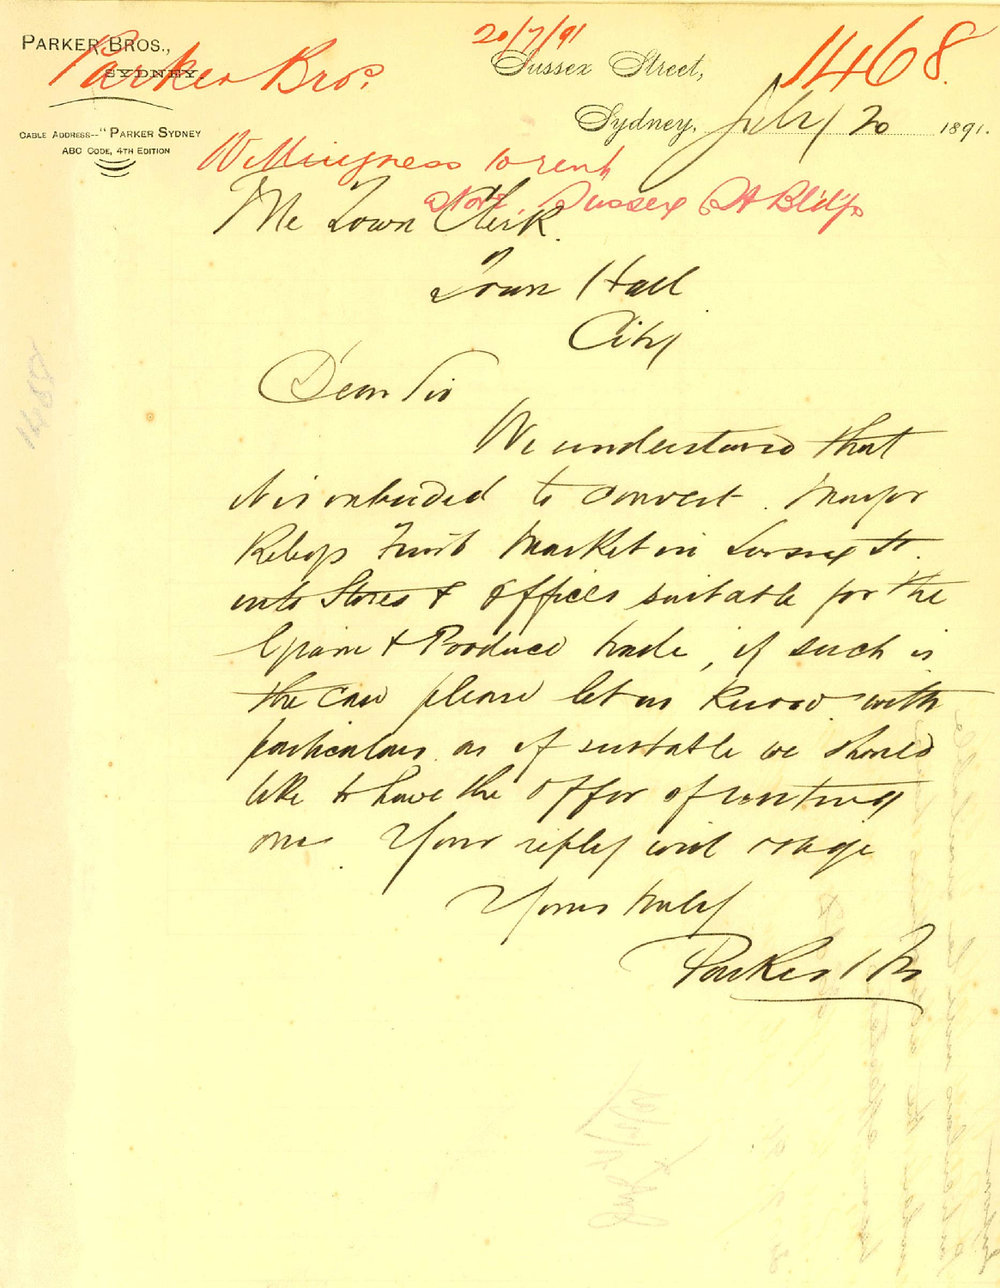 PARKER BROS.,
SYDNEY
CABLE ADDRESS--"PARKER SYDNEY
ABC CODE, 4TH EDITION
Parker Bros
20/7/91
1468
Sussex Street,
Sydney, July 20 1891.
Willingness to rent
Store, Sussex St Bld'gs
The Town Clerk
Town Hall
City
Dear Sir
We understand that
it is intended to convert Mayor
Fruit Market in Sussex St.
into Stores & Offices suitable for the
Grain & Produce trade, if such is
the case please let us know with
particulars as if suitable we should
like to have the offer of renting
one. Your reply will oblige
Yours truly
Parker Bros
1468